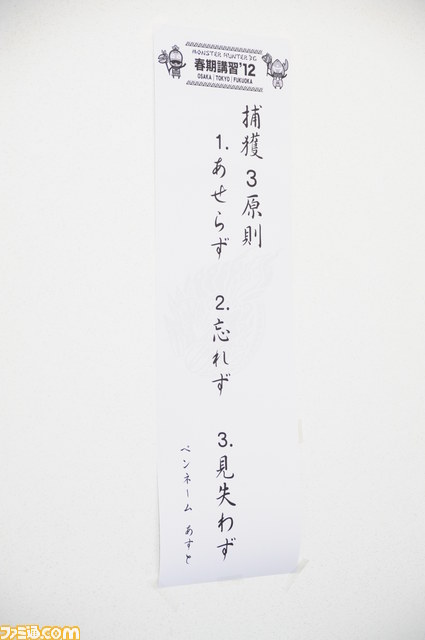 MONSTER HUNTER 3G
春期講習'12
OSAKA | TOKYO | FUKUOKA
捕獲3原則
1.あせらず
2.忘れず
3.見失わず
ペンネーム あすと
ファミ通.com